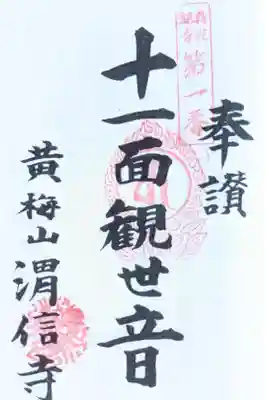 奉讃
第一番
十一面観世音
黄梅山渭信寺